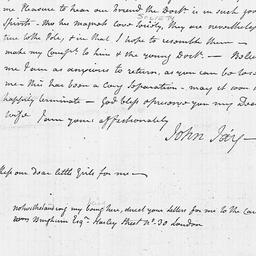 me Pleasure to hear our Friend the Doctr is in such good
Spirits - tho' his magnets Love Variety, they are nevertheless
true to the Pole, & in that I hope to resemble them -
make my Compts to him & the young Doctr -
me I am as anxious to return, as you can be
me - this has been a long Separation - may it soon &
happily terminate - God bless & preserve you my Dear
Wife I am yours affectionately
John Jay -
our Dear little Girls for me -
notwithstanding my being here, direct your Letters for me to the
Wm Bingham Esqr Harley Street No. 30 London